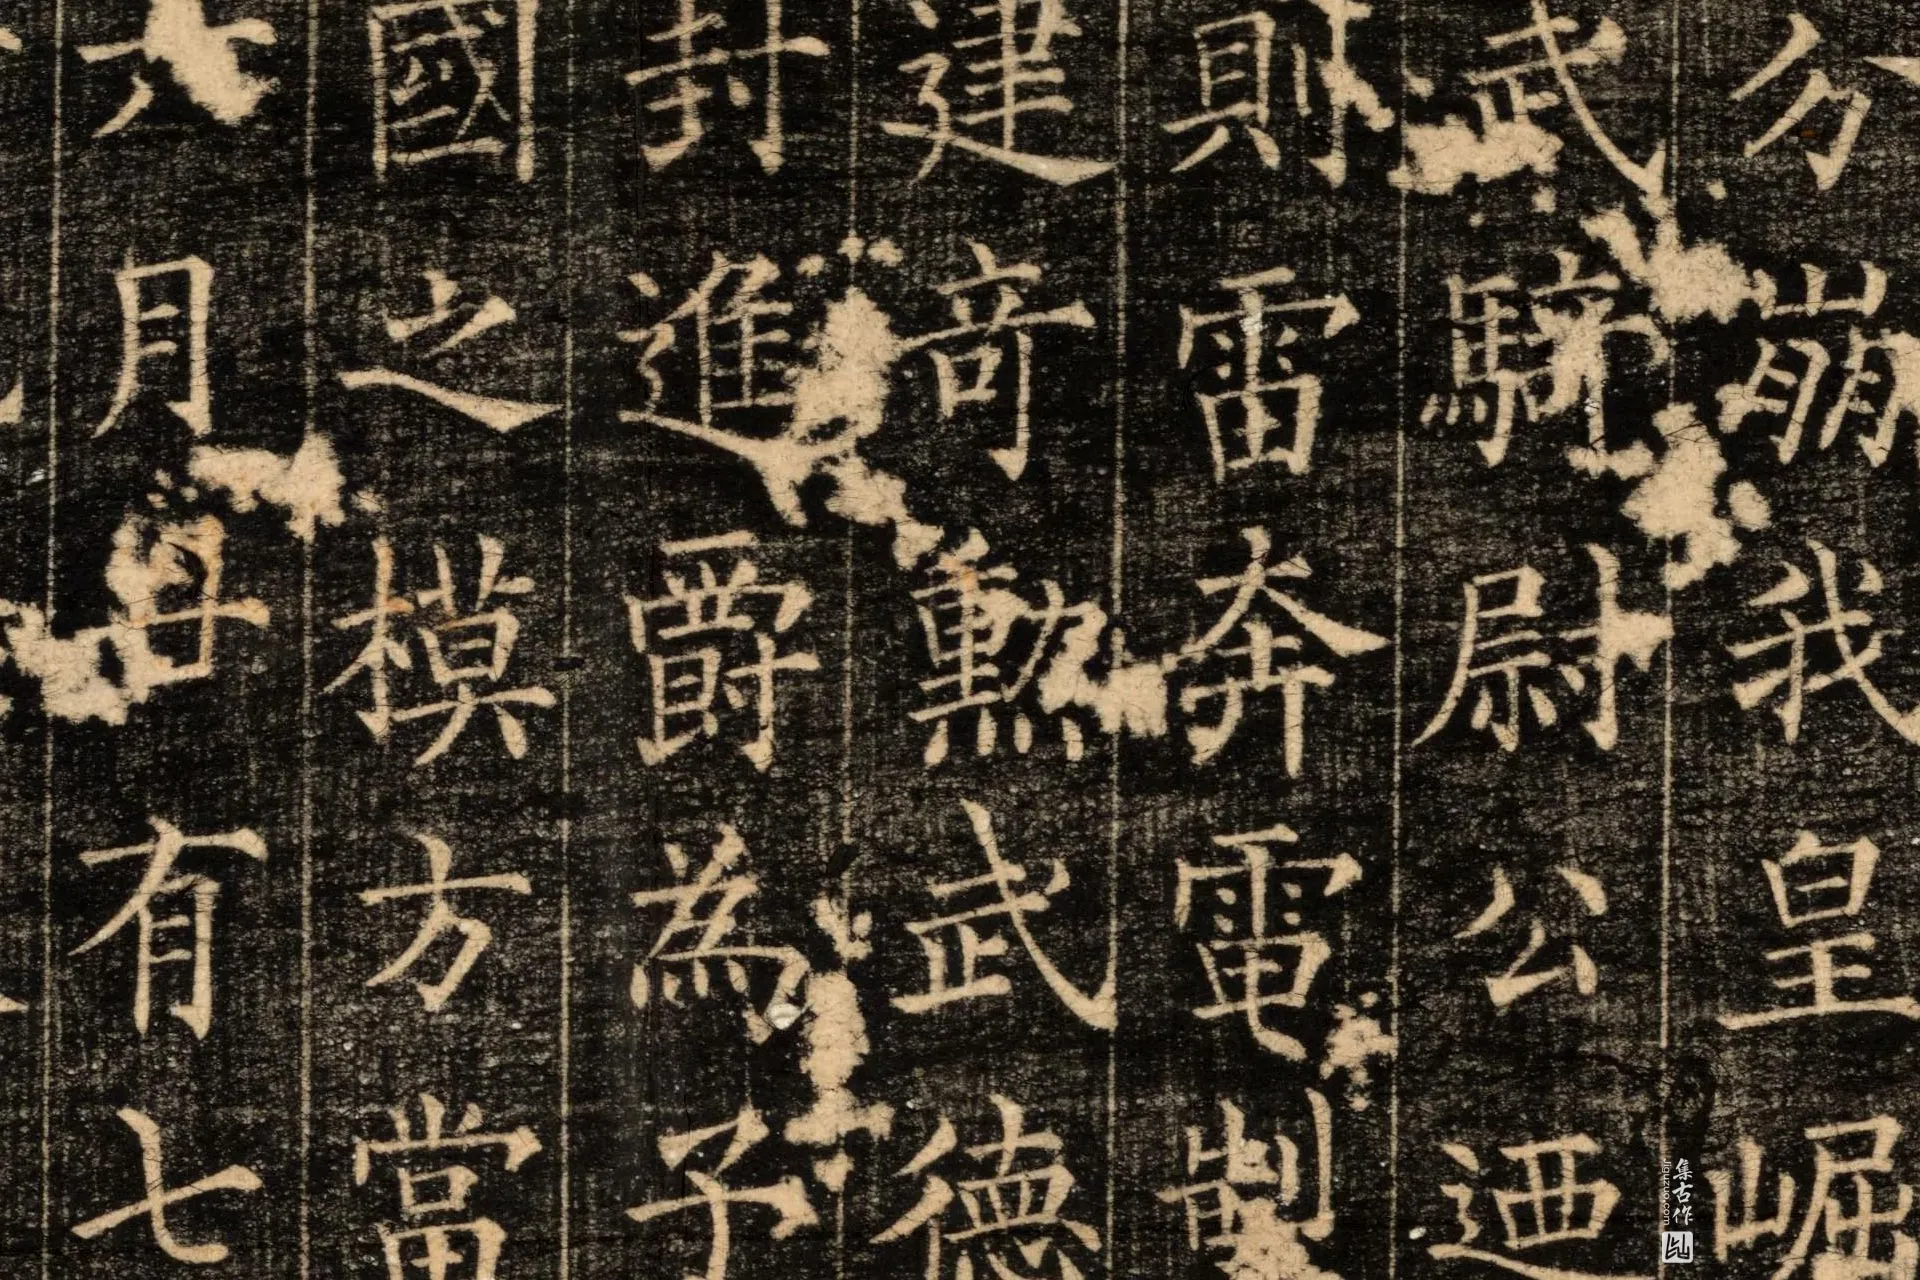 分崩我皇崛
武騎尉公迺
則雷奔電掣
建竒勳武德
封進爵為子
國之模方當
月有七
集古作
jiguzuo.com